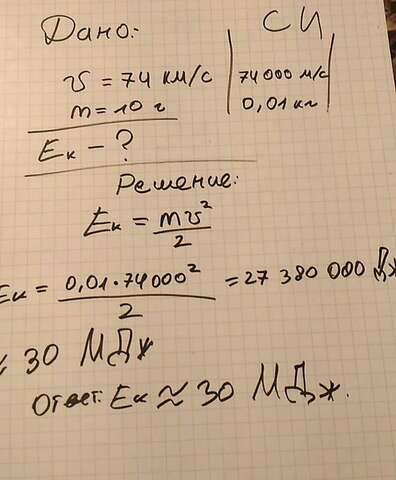 Дано:
СИ
v = 74 км/с
74 000 м/с
m = 10 г
0,01 кг
Eк - ?
Решение:
Eк = mv²/2
Eк = 0,01·74000²/2 = 27 380 000 Дж
≈ 30 МДж
Ответ: Eк ≈ 30 МДж.